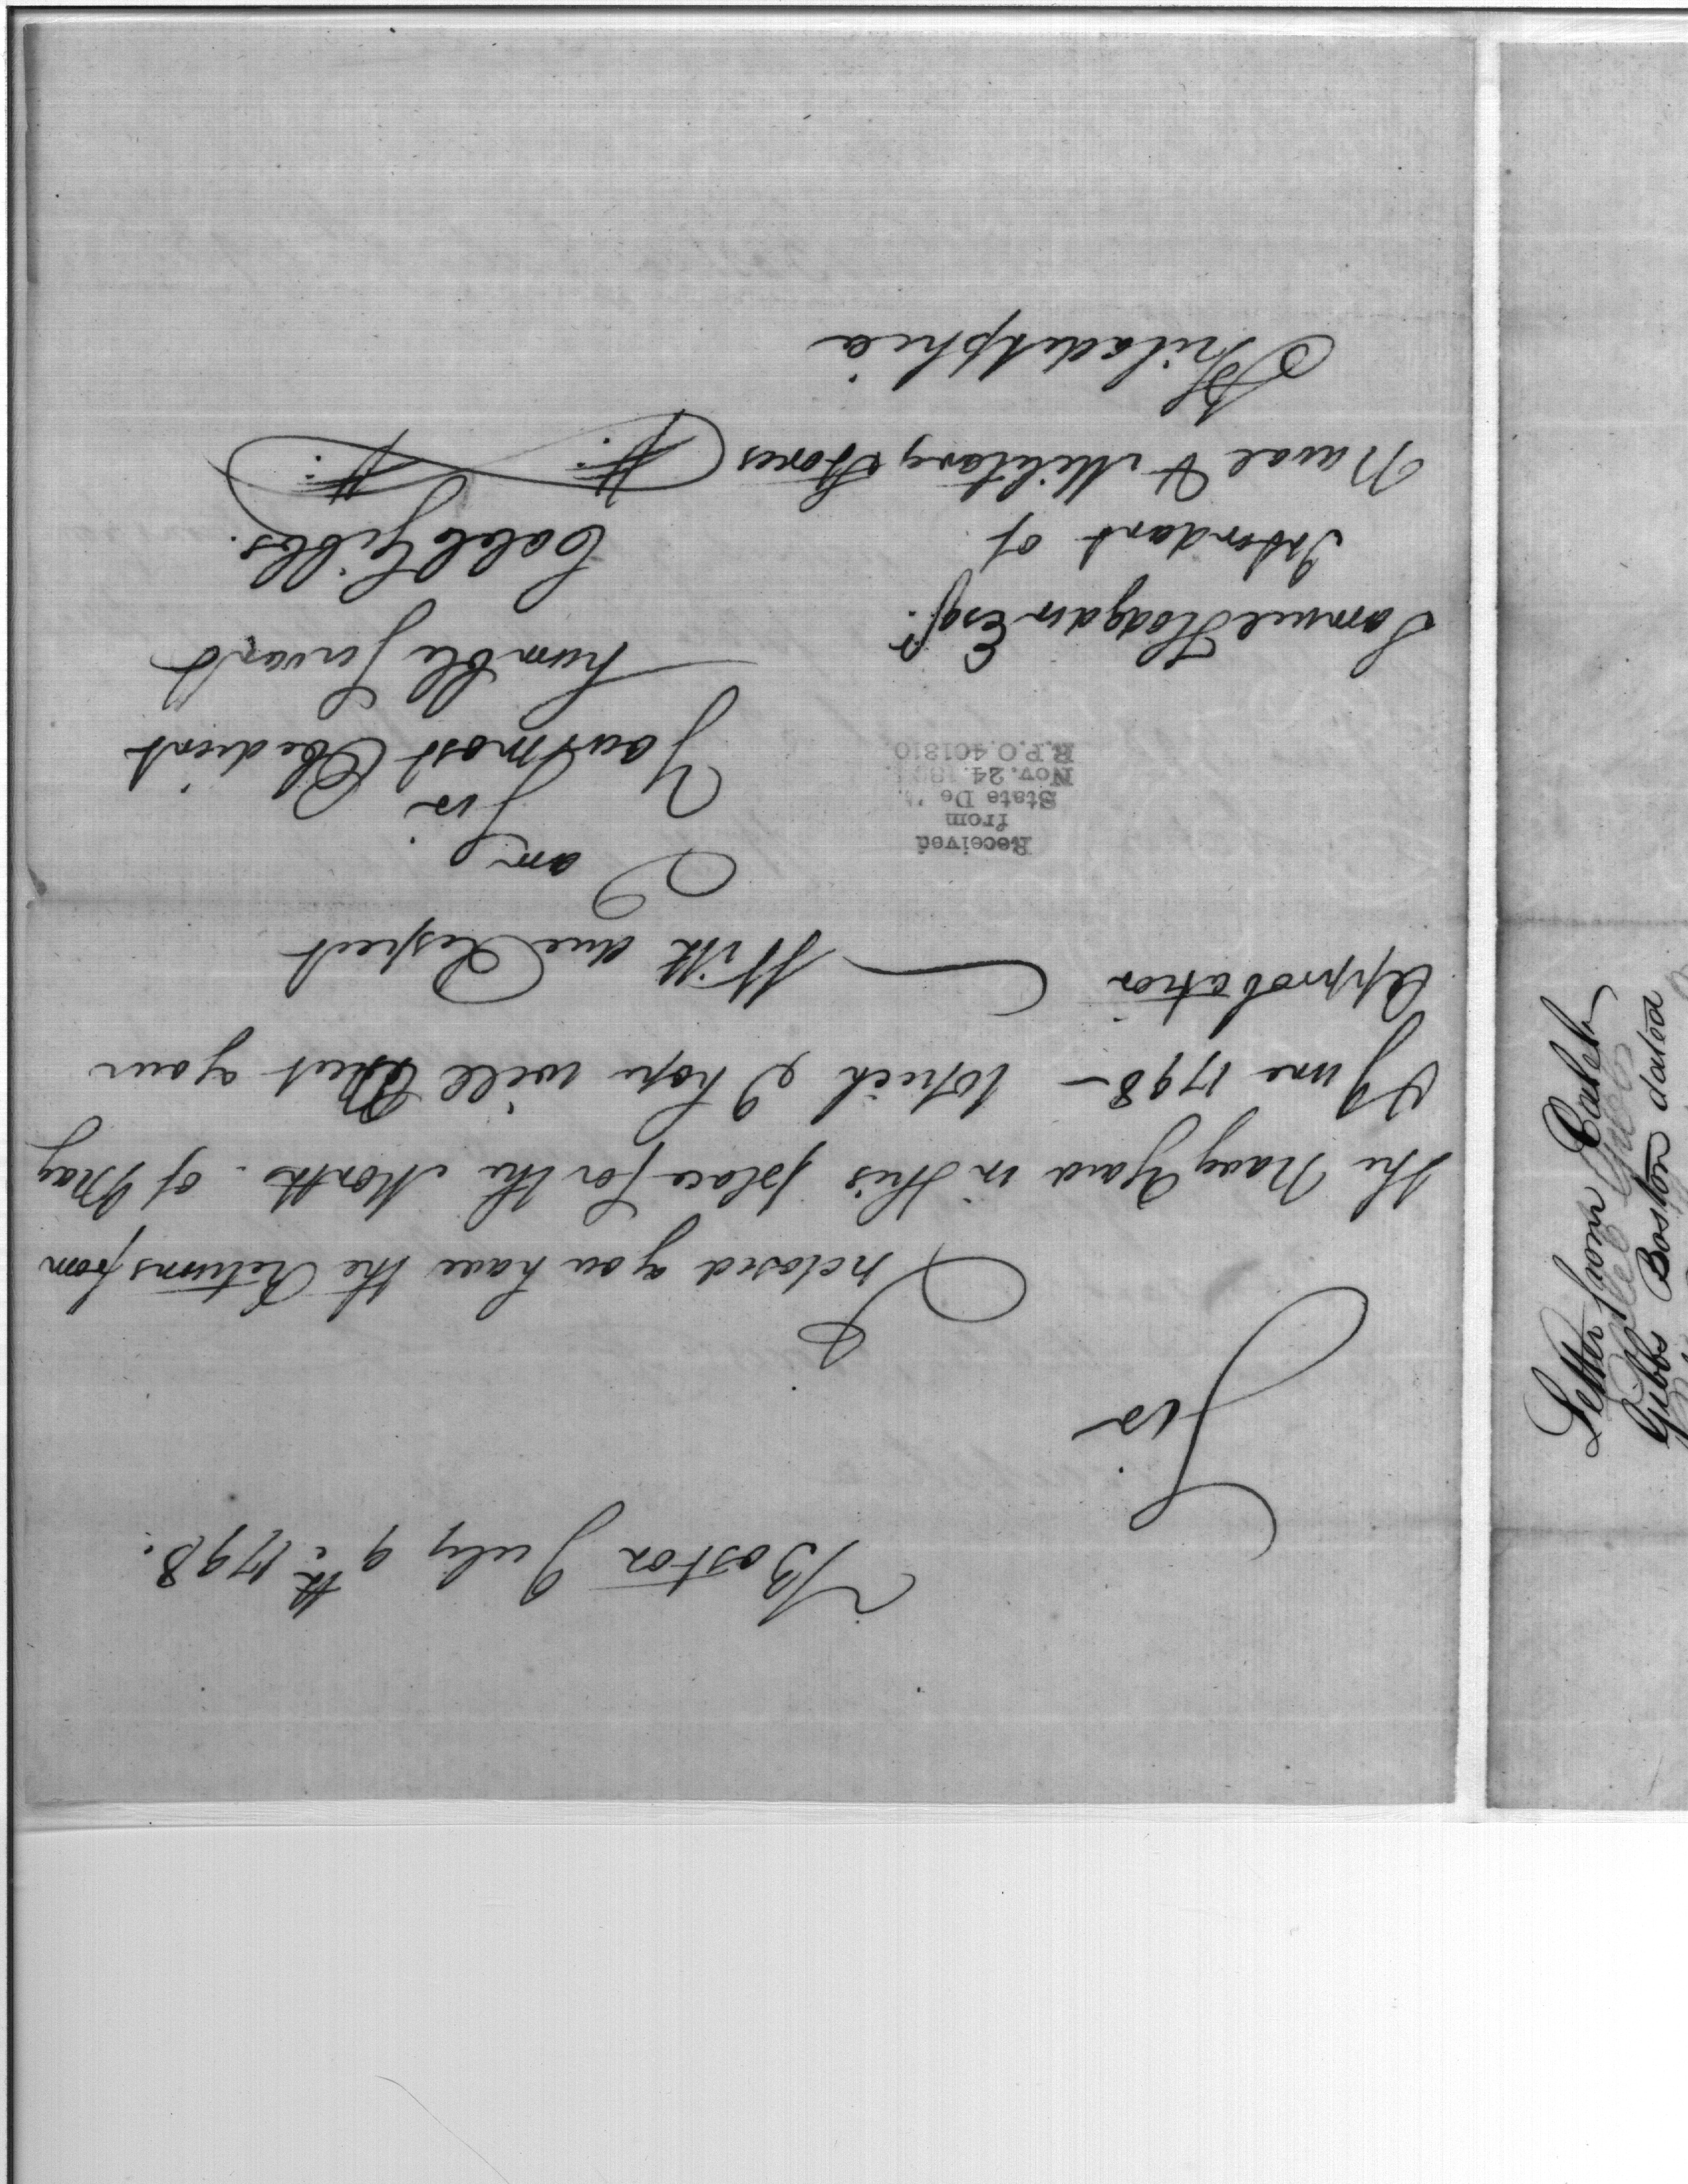 Boston July 9th: 1798.
Sir
Inclosed you have the Returns from
the Navy Yard in this place for the Months of May
& June 1798 - which I hope will Meet your
Approbation
With due Respect
I am
Sir
Your most Obedient
humble Servant
Caleb Gibbs.
Received
from
State De
Nov. 24. 
R.P.O. 401810
Samuel Hodgdon Esqr.
Intendant of
Naval & Military Stores
Philadelphia
Letter from Caleb
Gibbs Boston dated